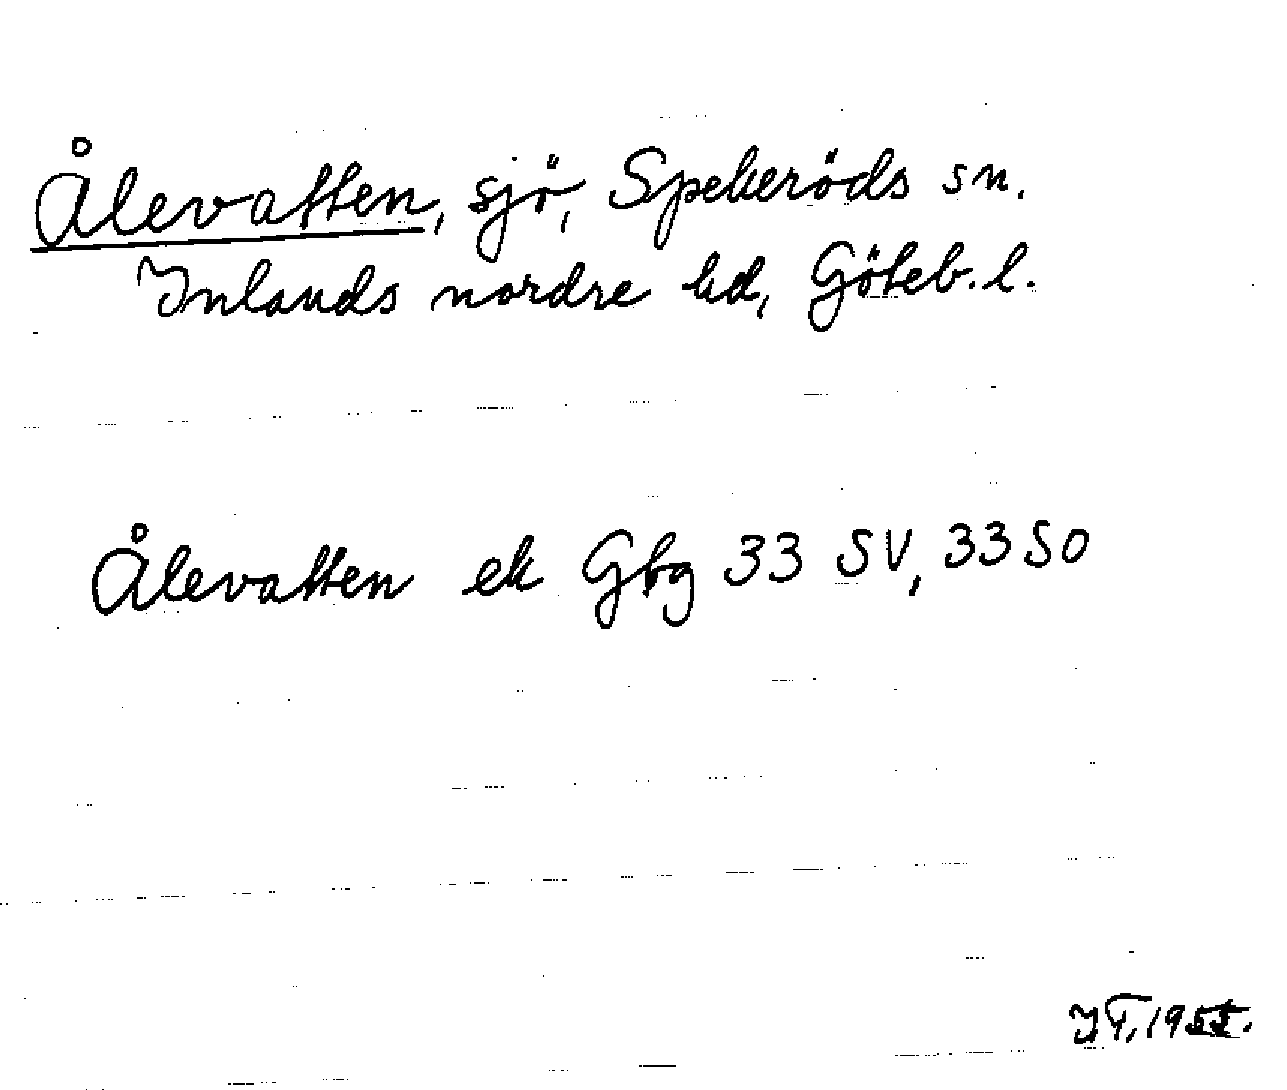 Ålevatten, sjö, Spekeröds sn.
Inlands nordre hd, Göteb. l.
Ålevatten ek Gbg 33 SV, 33 SO
1955.